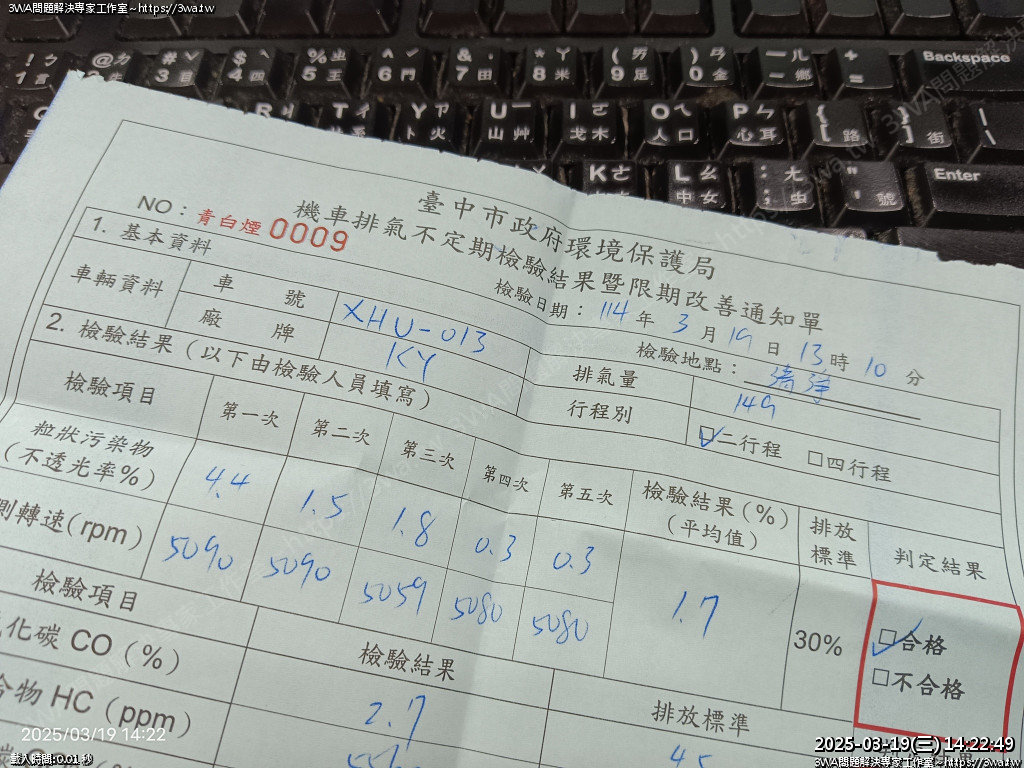 3WA問題解決專家工作室~https://3wa.tw
Backspace
Enter
臺中市政府環境保護局
機車排氣不定期檢驗結果暨限期改善通知單
NO：青白煙 0009
檢驗日期：114年3月19日13時10分
1. 基本資料
檢驗地點：
車輛資料
車號 XHU-013
排氣量 149
廠牌 KY
行程別 ☑二行程 □四行程
2. 檢驗結果（以下由檢驗人員填寫）
檢驗項目 第一次 第二次 第三次 第四次 第五次 檢驗結果(%)（平均值） 排放標準 判定結果
粒狀污染物（不透光率%） 4.4 1.5 1.8 0.3 0.3 1.7 30% ☑合格
□不合格
測轉速(rpm) 5090 5090 5059 5080 5080
檢驗項目 檢驗結果 排放標準
化碳 CO（%） 2.7 4.5
合物 HC（ppm）
2025/03/19 14:22
載入時間:0.01 秒
2025-03-19(三) 14:22:49
3WA問題解決專家工作室~https://3wa.tw